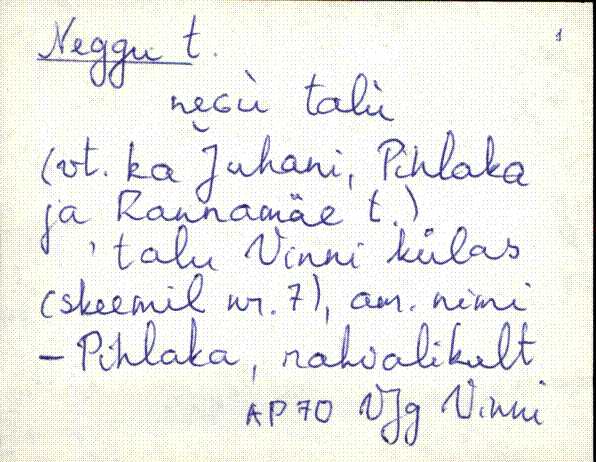 Neggu t.
1
neGù talù
(vt. ka Juhani, Pihlaka
ja Rannamäe t.)
, talu Vinni külas
(skeemil nr. 7), am. nimi
– Pihlaka, rahvalikult
AP70 VJg Vinni